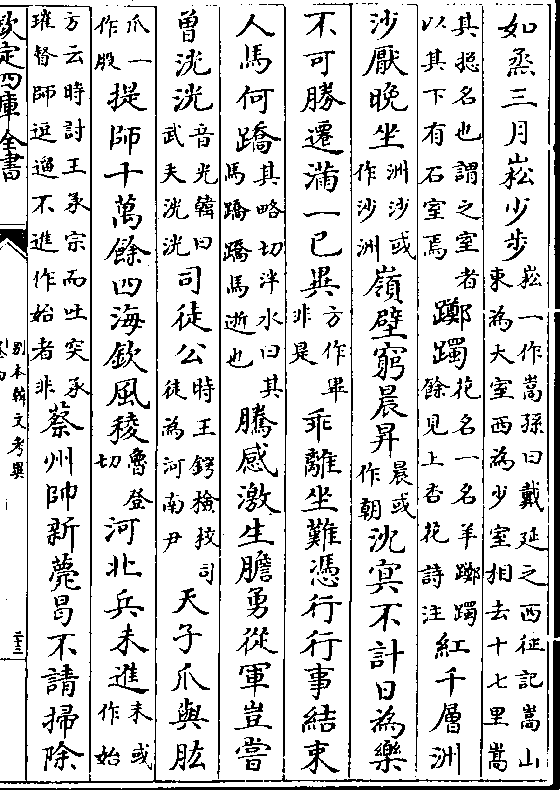 如烝三月崧少步崧一作嵩孫曰戴延之西征記嵩山東為大室西為少室相去十七里嵩
其揔名也謂之室者以其下有石室焉躑躅花名一名羊躑躅餘見上杏花詩注紅千層洲
沙厭晚坐洲沙或作沙洲嶺壁窮晨昇晨或作朝沈冥不計日為樂
不可勝遷滿一已異方作畢非是乖離坐難憑行行事結束
人馬何蹻其略切泮水曰其馬蹻蹻馬逝也騰感激生膽勇從軍豈嘗
曾洸洸音光韓曰武夫洸洸司徒公時王鍔檢技司徒為河南尹天子爪與肱
爪一作股提師十萬餘四海欽風稜魯登切河北兵未進未或作始
方云時討王承宗而吐突承璀督師逗遛不進作始者非蔡州帥新薨曷不請掃除
欽定四庫全書
別本韓文考異